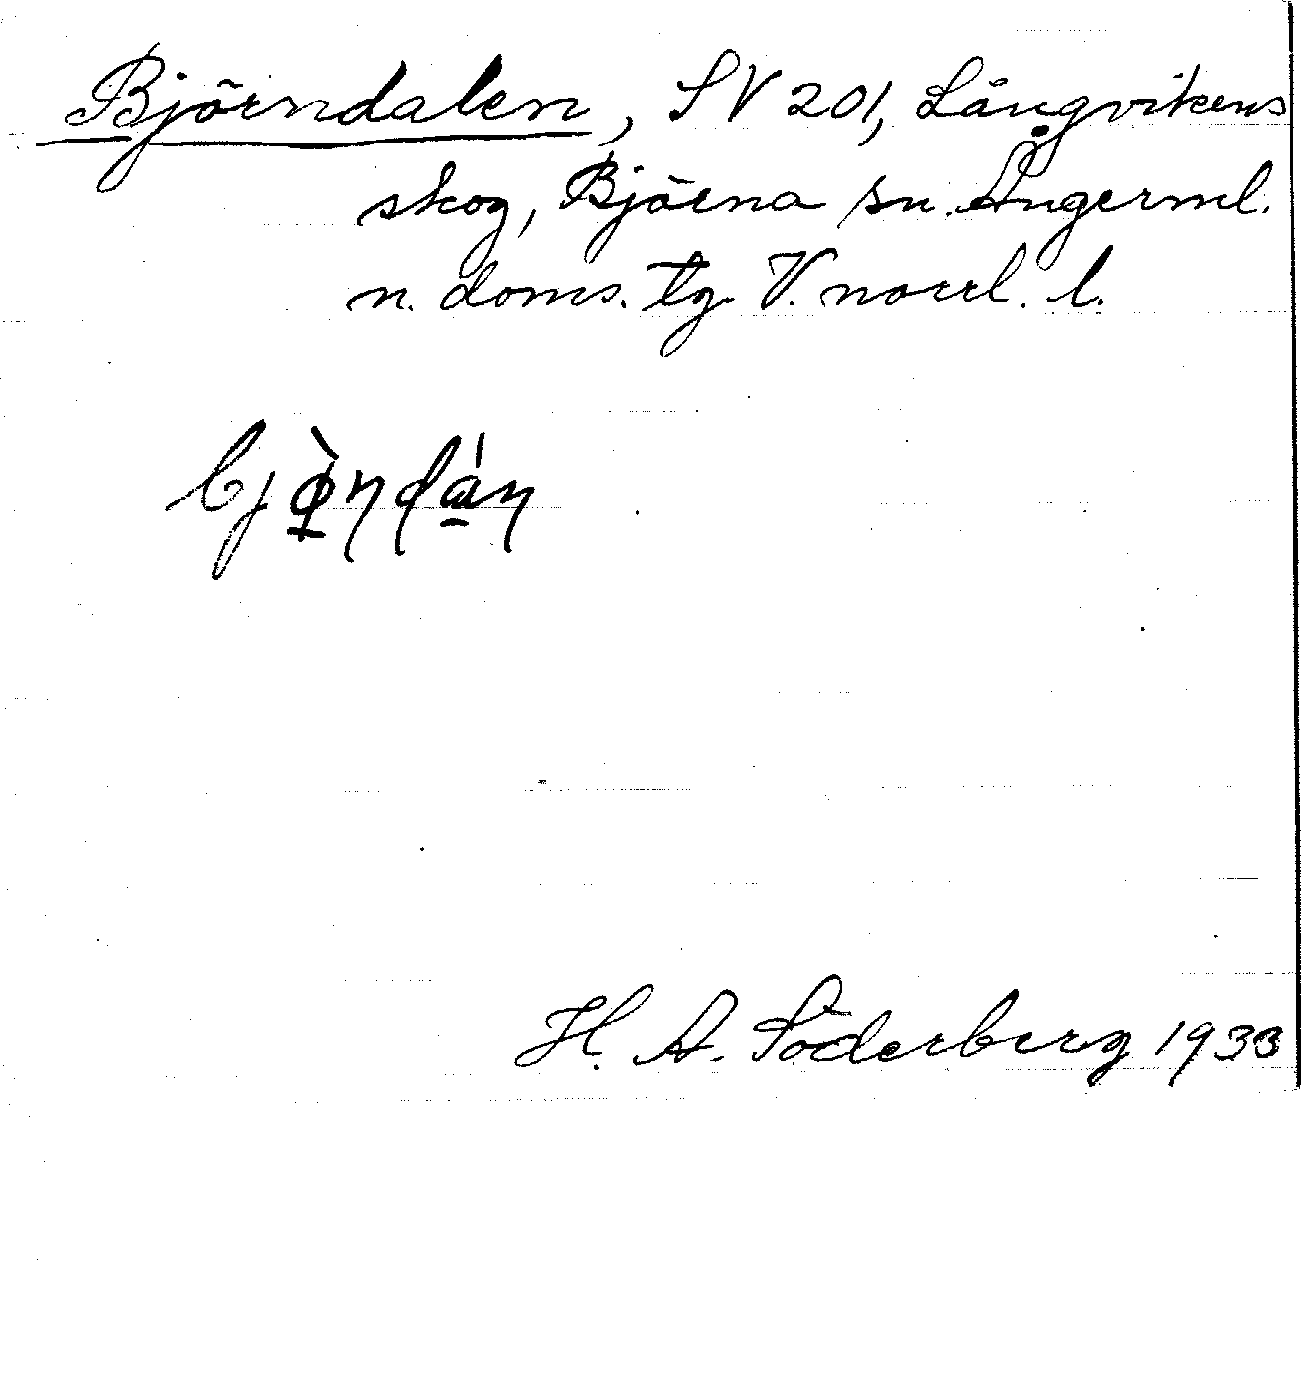 Björndalen, SV 201, Långvikens
skog, Björna sn. Ångerml.
n. doms. tg V. norrl. l.
bjø̀ɳɖá̱ɳ
H. A. Söderberg 1933